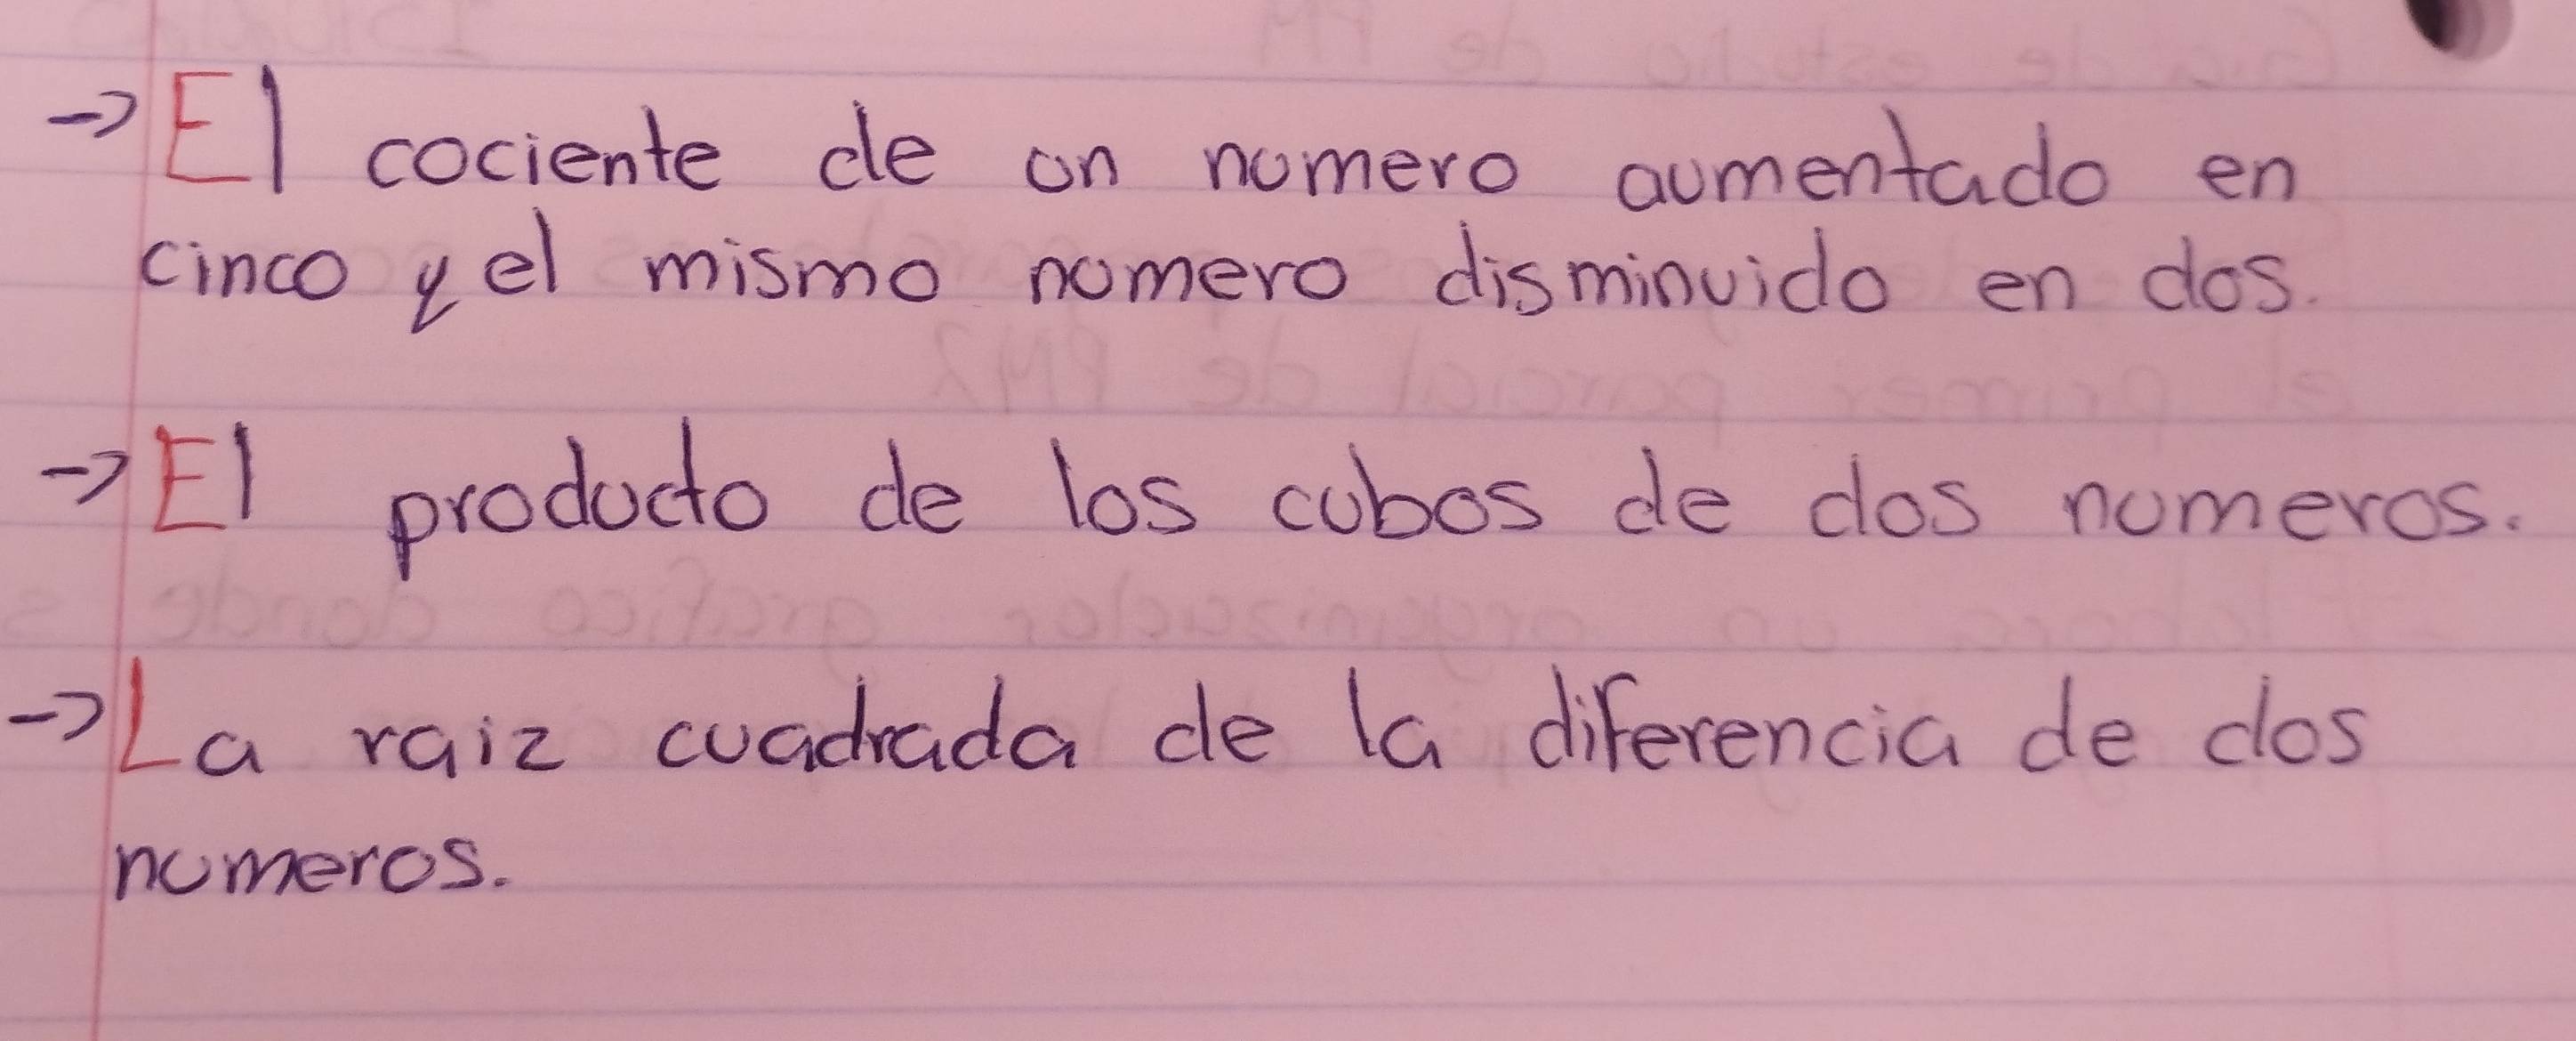 →El cociente de un numero aumentado en
cinco y el mismo numero disminuido en dos.
→El producto de los cubos de dos numeros.
→La raiz cuadrada de la diferencia de dos
numeros.